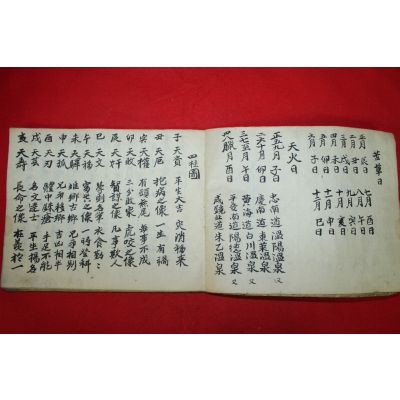 正月 辰日 七月 酉日
二月 丑日 八月 午日
三月 戌日 九月 寅日
四月 未日 十月 亥日
五月 卯日 十一月 申日
六月 子日 十二月 巳日
天火日
正五九月 子日 忠南道溫陽溫泉 又
二六十月 卯日 慶南道東萊溫泉
三七至月 午日 黃海道白川溫泉 又
四八臘月 酉日 平安南道陽德溫泉
咸鏡北道朱乙溫泉
四柱圖
子 天貴 平生大吉 灾消福来
丑 天厄 抱病之像 一生有禍
寅 天權 有頭無尾 每事不成
卯 天破 三分敗家 虎咬之像
辰 天奸 智謀之像 凡事欺人
巳 天文 衣食勤々
午 天福 之像 一時登科
未 天驛 兄弟相别
申 天孤 兄弟移鄕 吉凶相半
酉 天刃 體中 手足不能
戌 天芸 名文 平生揚名
亥 天壽 長命之像 義於一